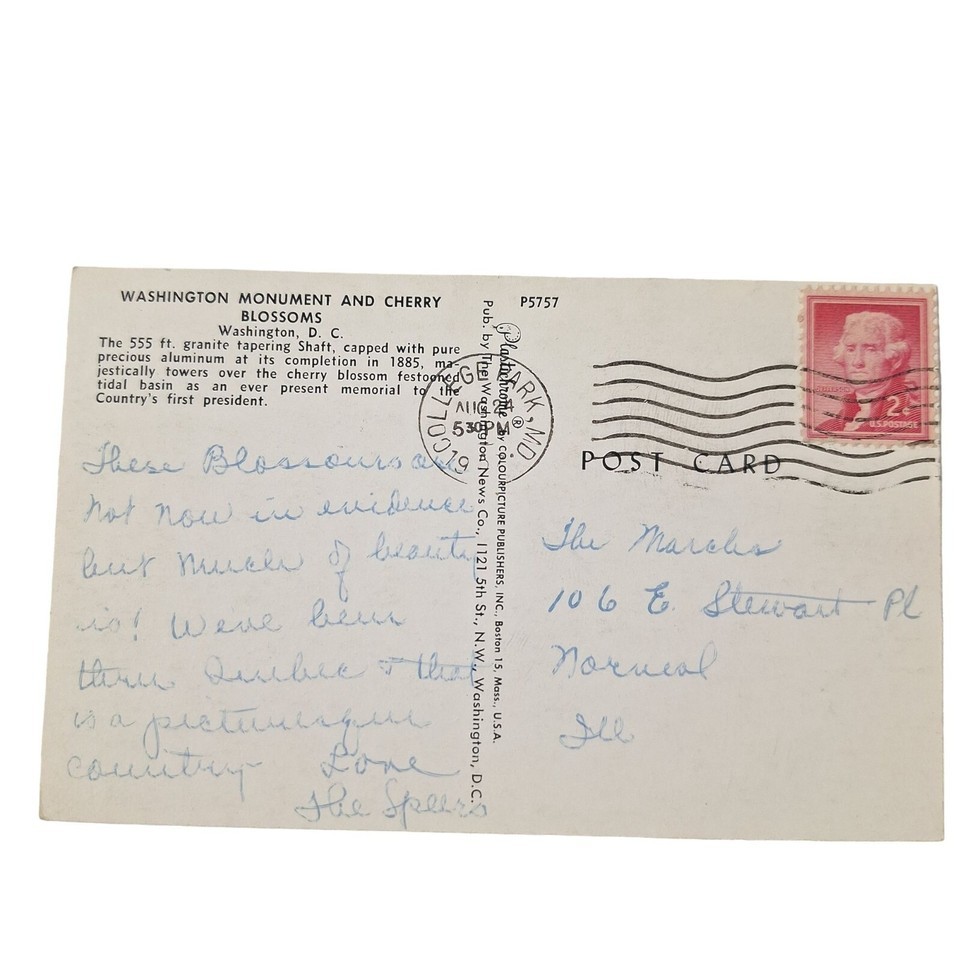 WASHINGTON MONUMENT AND CHERRY
BLOSSOMS
Washington, D. C.
The 555 ft. granite tapering Shaft, capped with pure
precious aluminum at its completion in 1885, ma-
jestically towers over the cherry blossom festooned
tidal basin as an ever present memorial to the
Country's first president.
These Blossoms are
not now in evidence
but much of beauty
is! Weve been
thru Quebec & that
is a picturesque
country Love
The Speers
P5757
Plastichrome ® by COLOURPICTURE PUBLISHERS, INC., Boston 15, Mass., U.S.A.
Pub. by The Washington News Co., 1121 5th St., N.W., Washington, D.C.
COLLEGE PARK, MD.
AUG 24
5 30 PM
19
2¢
U.S. POSTAGE
POST CARD
The Marches
106 E. Stewart Pl
Normal
Ill